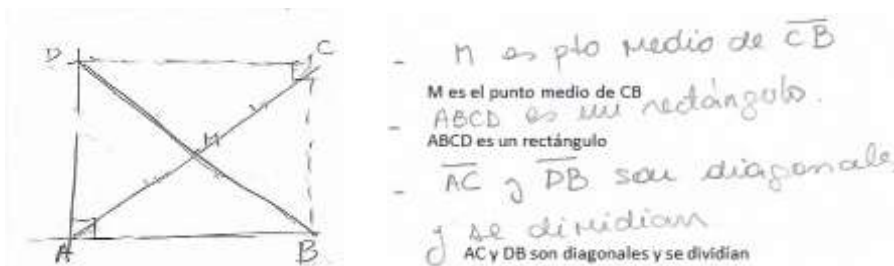 D
C
M
A
B
- M es pto medio de CB
M es el punto medio de CB
- ABCD es un rectángulo.
ABCD es un rectángulo
- AC y DB son diagonale
y se dividian
AC y DB son diagonales y se dividían